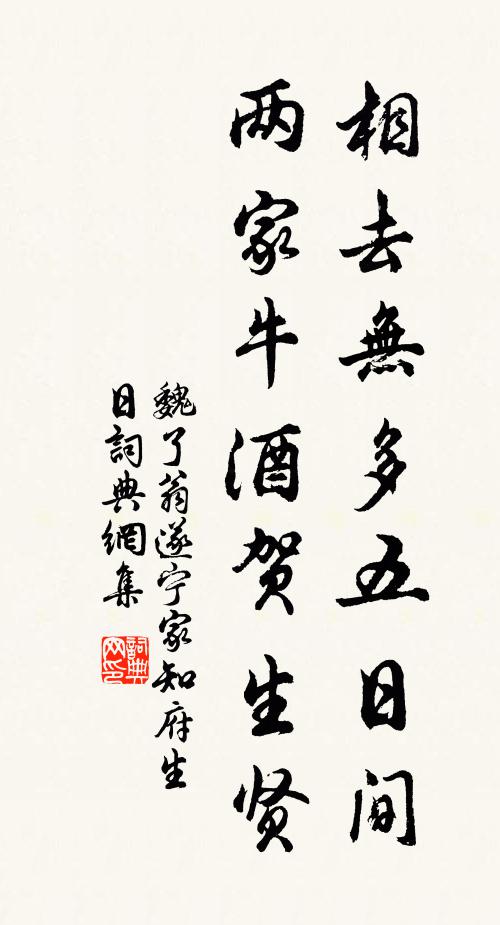 相去無多五日间
两家牛酒贺生贤
魏了翁遂宁家知府生
日詞典網集
詞典网印